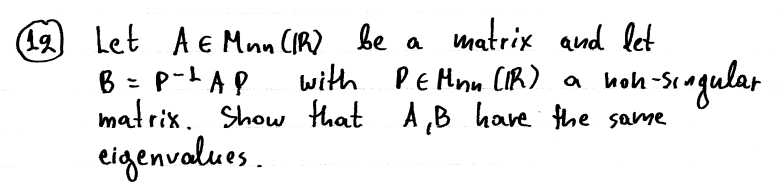 (12) Let A ∈ Mnn (ℝ) be a matrix and let
B = P⁻¹ A P with P ∈ Mnn (ℝ) a non-singular
matrix. Show that A, B have the same
eigenvalues.